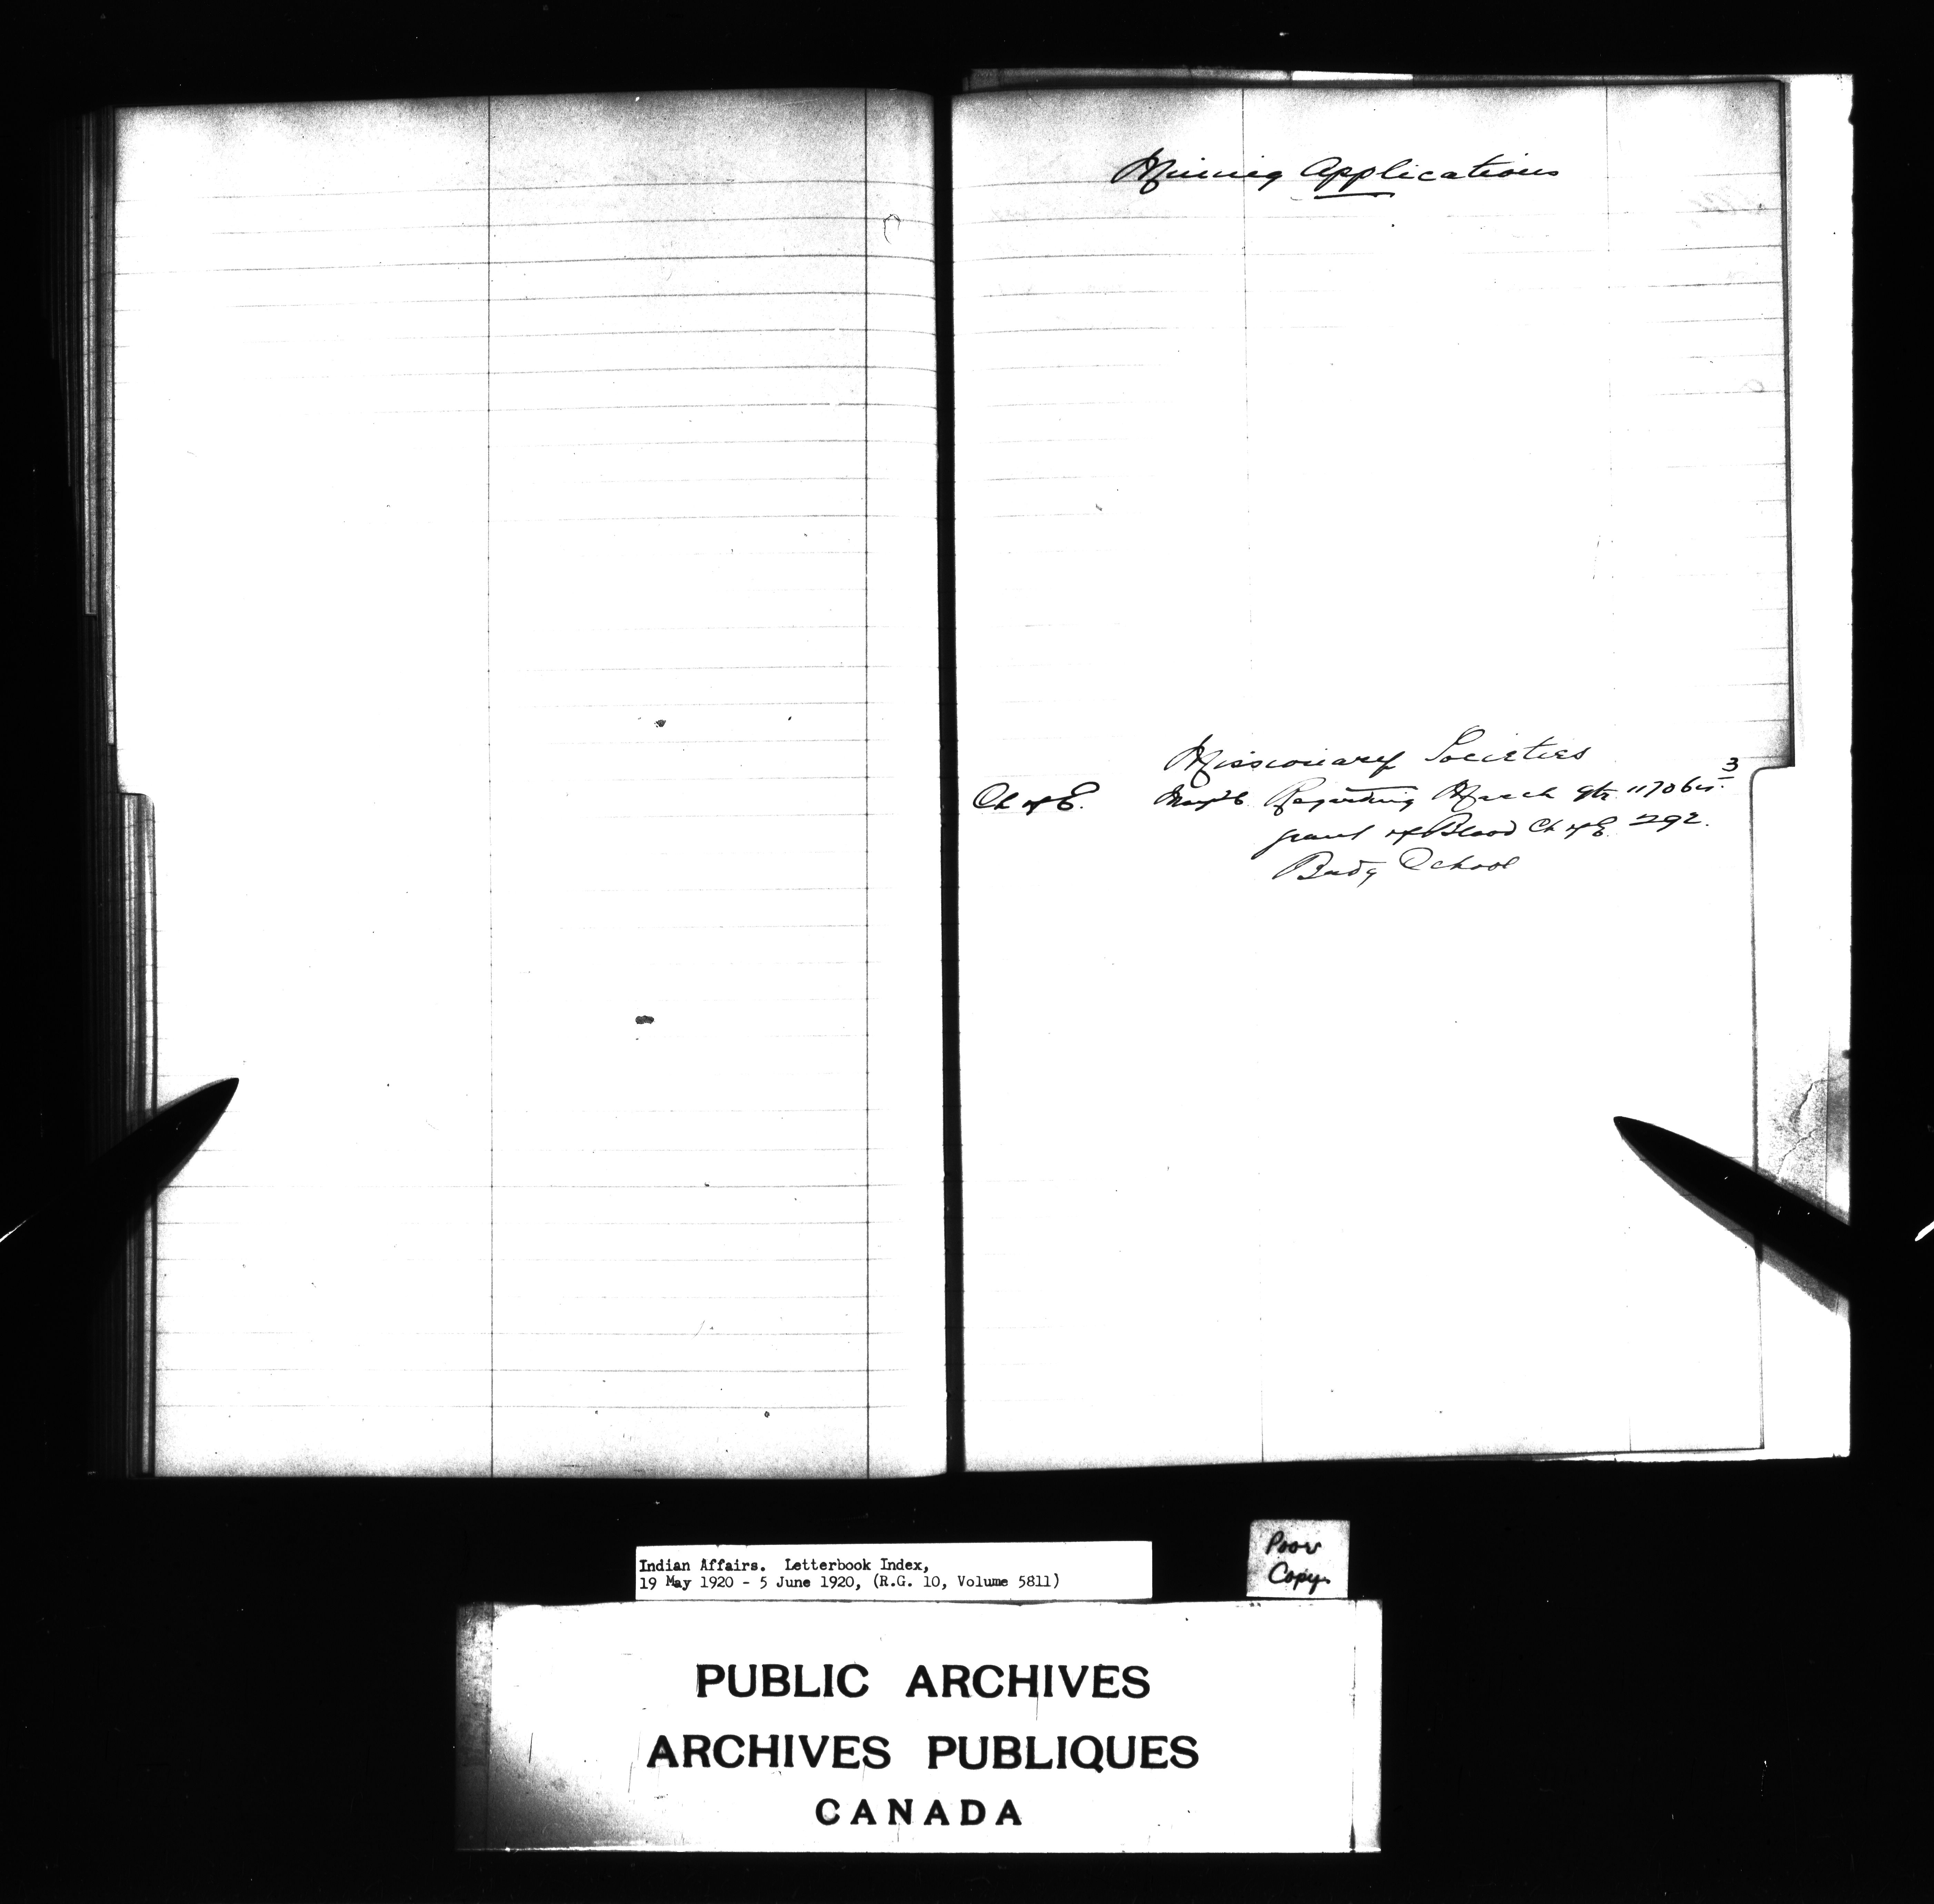 Mining Applications
Missionary Societies
Ch of E. May 26 Regarding March qtr
grant of Blood Ch of E. 292.
Bndg School
Indian Affairs. Letterbook Index,
19 May 1920 - 5 June 1920, (R.G. 10, Volume 5811)
Poor
Copy
PUBLIC ARCHIVES
ARCHIVES PUBLIQUES
CANADA